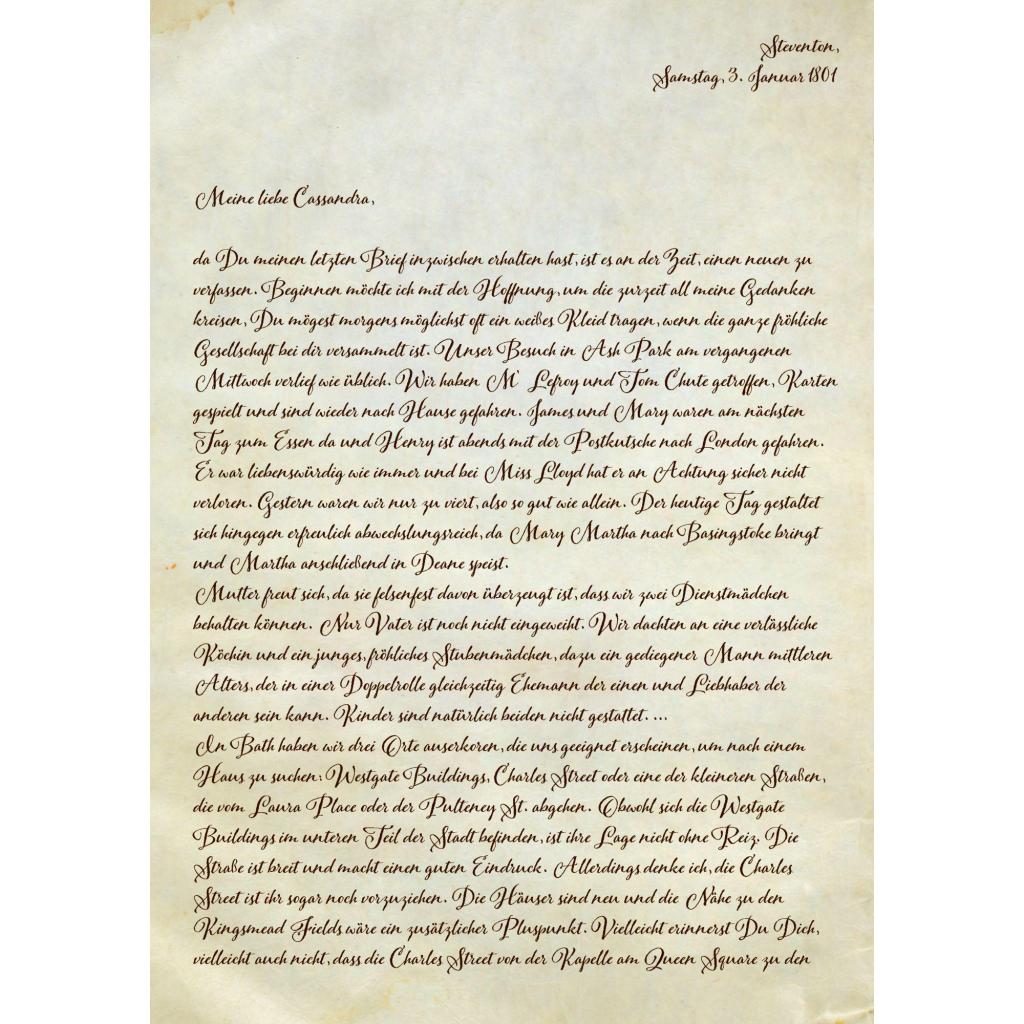 Steventon,
Samstag, 3. Januar 1801
Meine liebe Cassandra,
da Du meinen letzten Brief inzwischen erhalten hast, ist es an der Zeit, einen neuen zu
verfassen. Beginnen möchte ich mit der Hoffnung, um die zurzeit all meine Gedanken
kreisen, Du mögest morgens möglichst oft ein weißes Kleid tragen, wenn die ganze fröhliche
Gesellschaft bei dir versammelt ist. Unser Besuch in Ash Park am vergangenen
Mittwoch verlief wie üblich. Wir haben M' Lefroy und Tom Chute getroffen, Karten
gespielt und sind wieder nach Hause gefahren. James und Mary waren am nächsten
Tag zum Essen da und Henry ist abends mit der Postkutsche nach London gefahren.
Er war liebenswürdig wie immer und bei Miss Lloyd hat er an Achtung sicher nicht
verloren. Gestern waren wir nur zu viert, also so gut wie allein. Der heutige Tag gestaltet
sich hingegen erfreulich abwechslungsreich, da Mary Martha nach Basingstoke bringt
und Martha anschließend in Deane speist.
Mutter freut sich, da sie felsenfest davon überzeugt ist, dass wir zwei Dienstmädchen
behalten können. Nur Vater ist noch nicht eingeweiht. Wir dachten an eine verlässliche
Köchin und ein junges, fröhliches Stubenmädchen, dazu ein gediegener Mann mittleren
Alters, der in einer Doppelrolle gleichzeitig Ehemann der einen und Liebhaber der
anderen sein kann. Kinder sind natürlich beiden nicht gestattet. ...
In Bath haben wir drei Orte auserkoren, die uns geeignet erscheinen, um nach einem
Haus zu suchen: Westgate Buildings, Charles Street oder eine der kleineren Straßen,
die vom Laura Place oder der Pulteney St. abgehen. Obwohl sich die Westgate
Buildings im unteren Teil der Stadt befinden, ist ihre Lage nicht ohne Reiz. Die
Straße ist breit und macht einen guten Eindruck. Allerdings denke ich, die Charles
Street ist ihr sogar noch vorzuziehen. Die Häuser sind neu und die Nähe zu den
Kingsmead Fields wäre ein zusätzlicher Pluspunkt. Vielleicht erinnerst Du Dich,
vielleicht auch nicht, dass die Charles Street von der Kapelle am Queen Square zu den